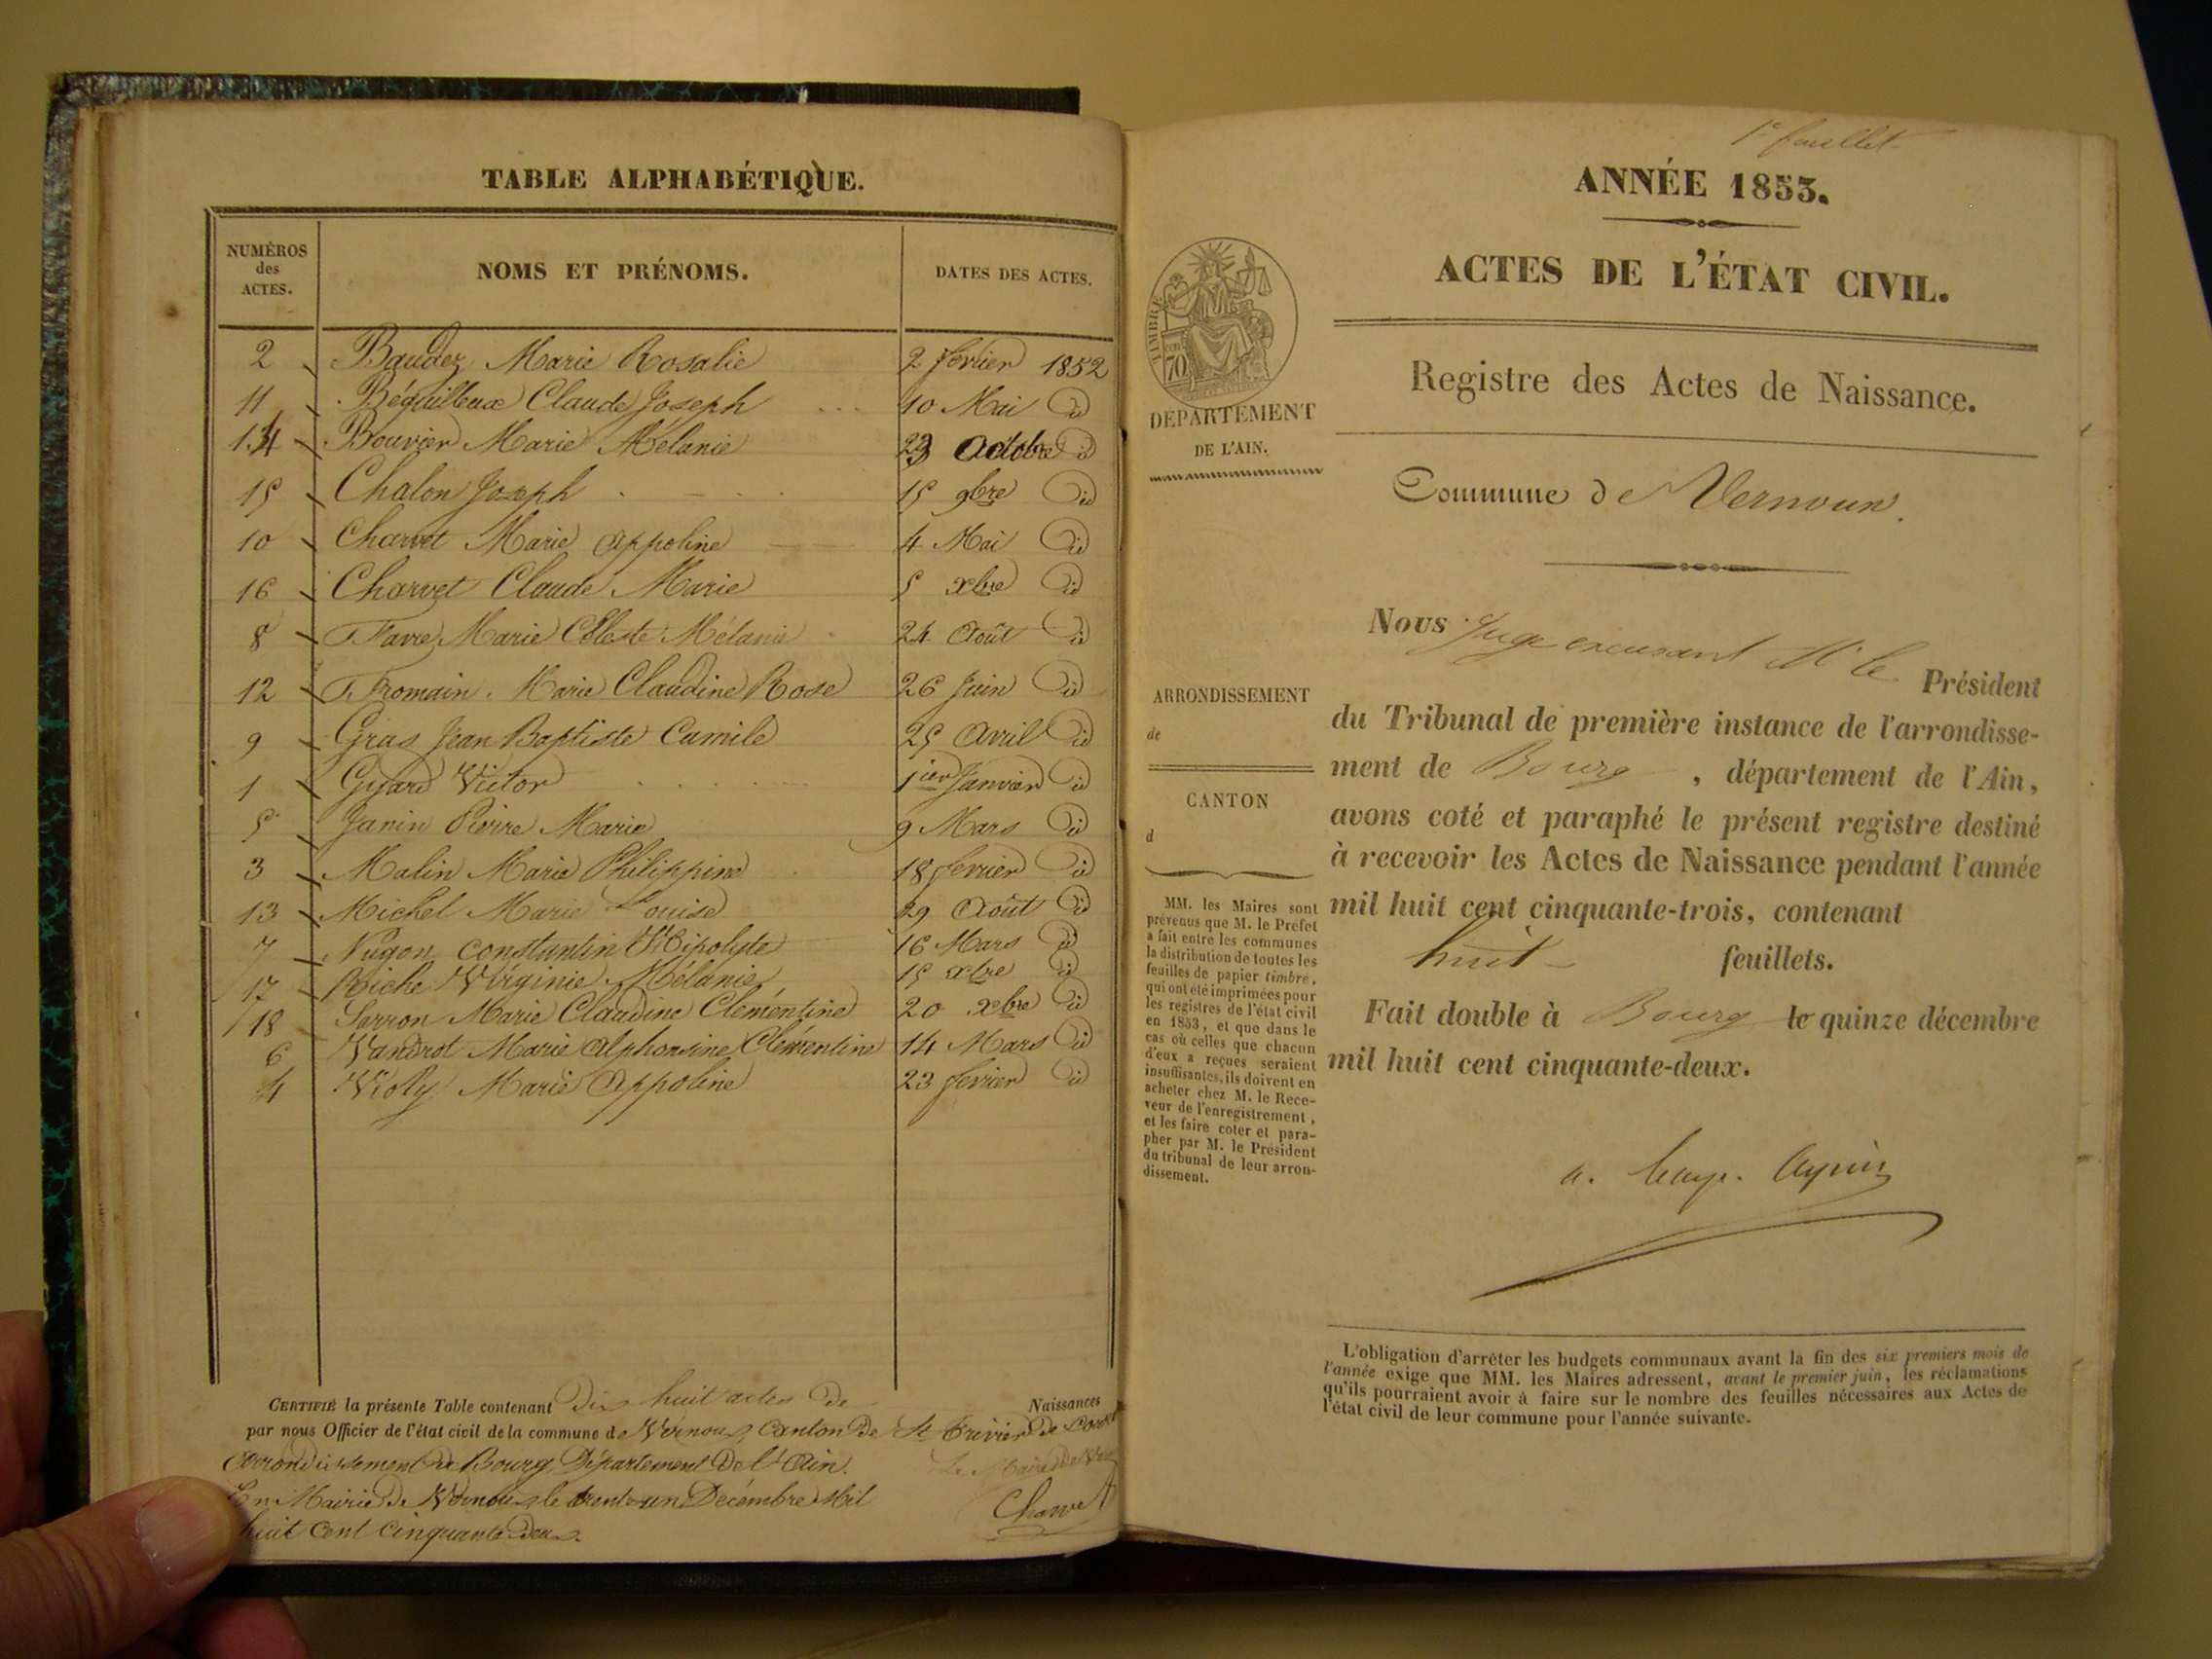 TABLE ALPHABÉTIQUE.
NUMÉROS des ACTES. NOMS ET PRÉNOMS. DATES DES ACTES.
2 Baudez Marie Rosalie 2 février 1852
11 Béquilleux Claude Joseph 10 Mai id
14 Bouvier Marie Mélanie 23 Octobre id
15 Chalon Joseph 15 9bre id
10 Charvet Marie Appoline 4 Mai id
16 Charvet Claude Marie 5 xbre id
8 Favre Marie Céleste Mélanie 24 Août id
12 Fromain Marie Claudine Rose 26 Juin id
9 Gras Jean Baptiste Camile 25 Avril id
1 Guyard Victor 1ier Janvier id
5 Janin Pierre Marie 9 Mars id
3 Malin Marie Philippine 18 fevrier id
13 Michel Marie Louise 29 Août id
7 Nugon Constantin Hipolyte 16 Mars id
17 Riche Virginie Mélanie 15 xbre id
18 Sarron Marie Claudine Clémentine 20 xbre id
6 Vandrot Marie Alphonsine Clémentine 14 Mars id
4 Violy Marie Appoline 23 fevrier id
CERTIFIÉ la présente Table contenant Dix huit actes de Naissances
par nous Officier de l'état civil de la commune de Vernoux Canton de St Trivier de
Arrondissement de Bourg Département de l'Ain.
En Mairie de Vernoux le trente un Décembre Mil
huit Cent Cinquante deux.
Le Maire de
Charvet
1er feuillet
ANNÉE 1853.
ACTES DE L'ÉTAT CIVIL.
Registre des Actes de Naissance.
TIMBRE
70
DÉPARTEMENT
DE L'AIN.
Commune de Vernoux.
ARRONDISSEMENT
de
CANTON
d
MM. les Maires sont
prévenus que M. le Préfet
a fait entre les communes
la distribution de toutes les
feuilles de papier timbré,
qui ont été imprimées pour
les registres de l'état civil
en 1853, et que dans le
cas où celles que chacun
d'eux a reçues seraient
insuffisantes, ils doivent en
acheter chez M. le Rece-
veur de l'enregistrement,
et les faire coter et para-
pher par M. le Président
du tribunal de leur arron-
dissement.
Nous Juge excusant Mr le Président
du Tribunal de première instance de l'arrondisse-
ment de Bourg, département de l'Ain,
avons coté et paraphé le présent registre destiné
à recevoir les Actes de Naissance pendant l'année
mil huit cent cinquante-trois, contenant
huit feuillets.
Fait double à Bourg le quinze décembre
mil huit cent cinquante-deux.
L'obligation d'arrêter les budgets communaux avant la fin des six premiers mois de
l'année exige que MM. les Maires adressent, avant le premier juin, les réclamations
qu'ils pourraient avoir à faire sur le nombre des feuilles nécessaires aux Actes de
l'état civil de leur commune pour l'année suivante.